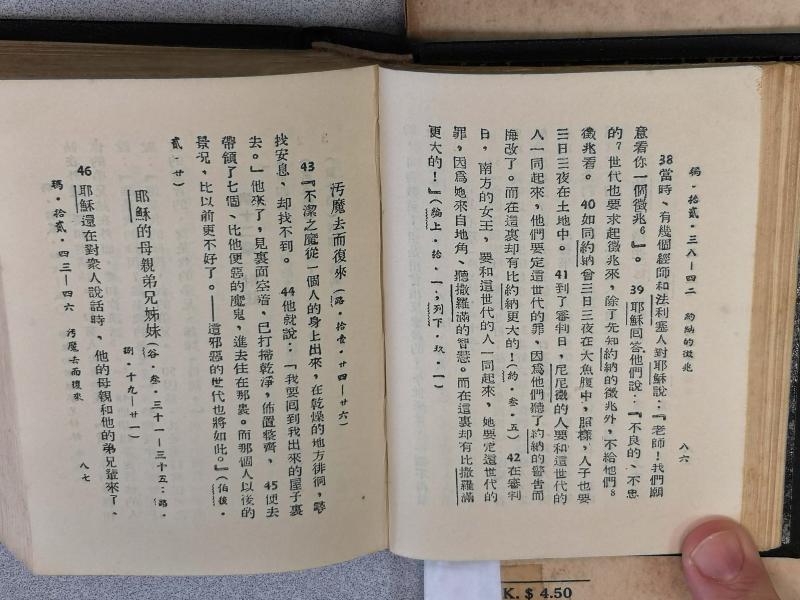 瑪・拾貳・三八—四二 約納的徵兆
八六
38當時、有幾個經師和法利塞人對耶穌說：『老師！我們願
意看你一個徵兆』。39耶穌回答他們說：『不良的、不忠
的？世代也要求起徵兆來，除了先知約納的徵兆外，不給他們
徵兆看。40如同約納曾三日三夜在大魚腹中，照樣，人子也要
三日三夜在土地中。41到了審判日，尼尼微的人要和這世代的
人一同起來，他們要定這世代的罪，因為他們聽了約納的警告而
悔改了。而在這裏却有比約納更大的！(約・叁・五) 42在審判
日，南方的女王，要和這世代的人一同起來，她要定這世代的
罪，因爲她來自地角、聽撒羅滿的智慧。而在這裏却有比撒羅滿
更大的！』(編上・拾・一；列下・玖・一)
汚魔去而復來 (路・拾壹・廿四—廿六)
43『不潔之魔從一個人的身上出來，在乾燥的地方徘徊，尋
找安息，却找不到。44他就說：「我要回到我出來的屋子裏
去。」他來了，見裏面空着，已打掃乾淨，佈置整齊，45便去
帶領了七個、比他更惡的魔鬼，進去住在那裏。而那個人以後的
景况，比以前更不好了。——這邪惡的世代也將如此。』(伯後・
貳・廿)
耶穌的母親弟兄姊妹 (谷・叁・三十一—三十五；路・
捌・十九—廿一)
46耶穌還在對衆人說話時，他的母親和他的弟兄輩來了，
瑪・拾貳・四三—四六 汚魔去而復來
八七
K. $ 4.50